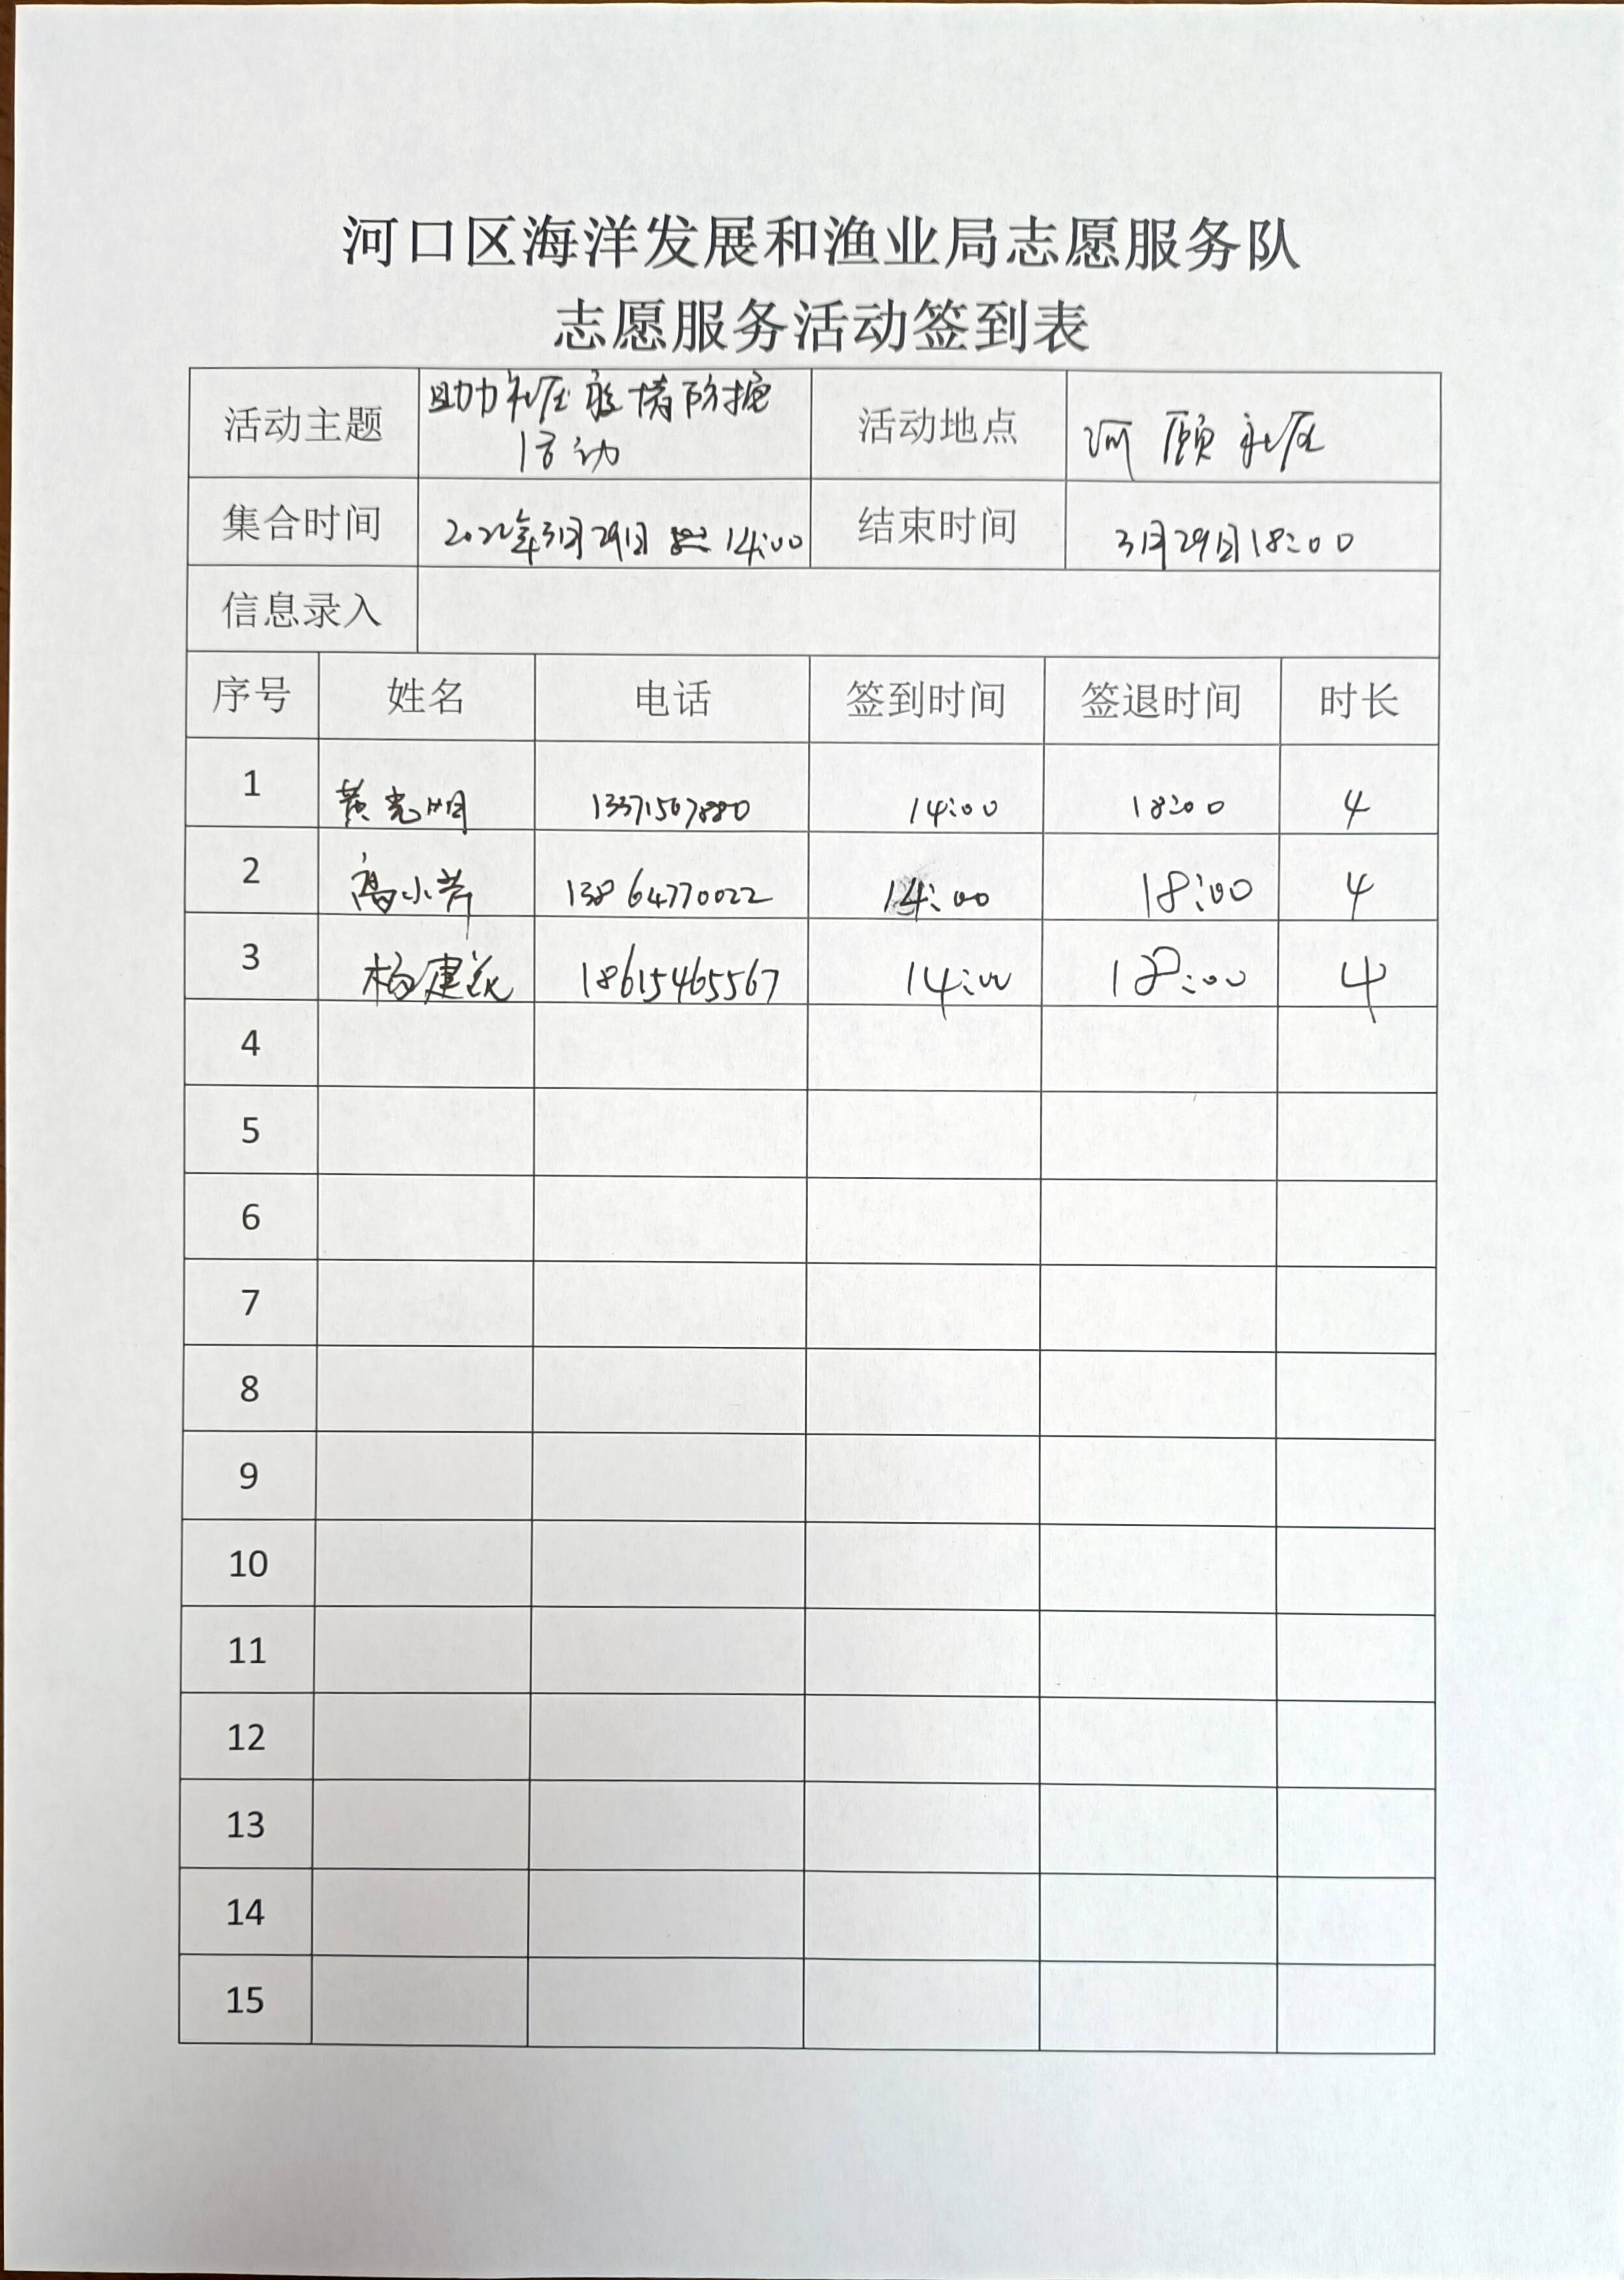 河口区海洋发展和渔业局志愿服务队
志愿服务活动签到表
活动主题 助力社区疫情防控 活动地点 河颐社区
活动
集合时间 2022年3月29日 14:00 结束时间 3月29日18:00
信息录入
序号 姓名 电话 签到时间 签退时间 时长
1 黄光明 13371567880 14:00 18:00 4
2 高小芹 13864770022 14:00 18:00 4
3 杨建 18615465567 14:00 18:00 4
4
5
6
7
8
9
10
11
12
13
14
15